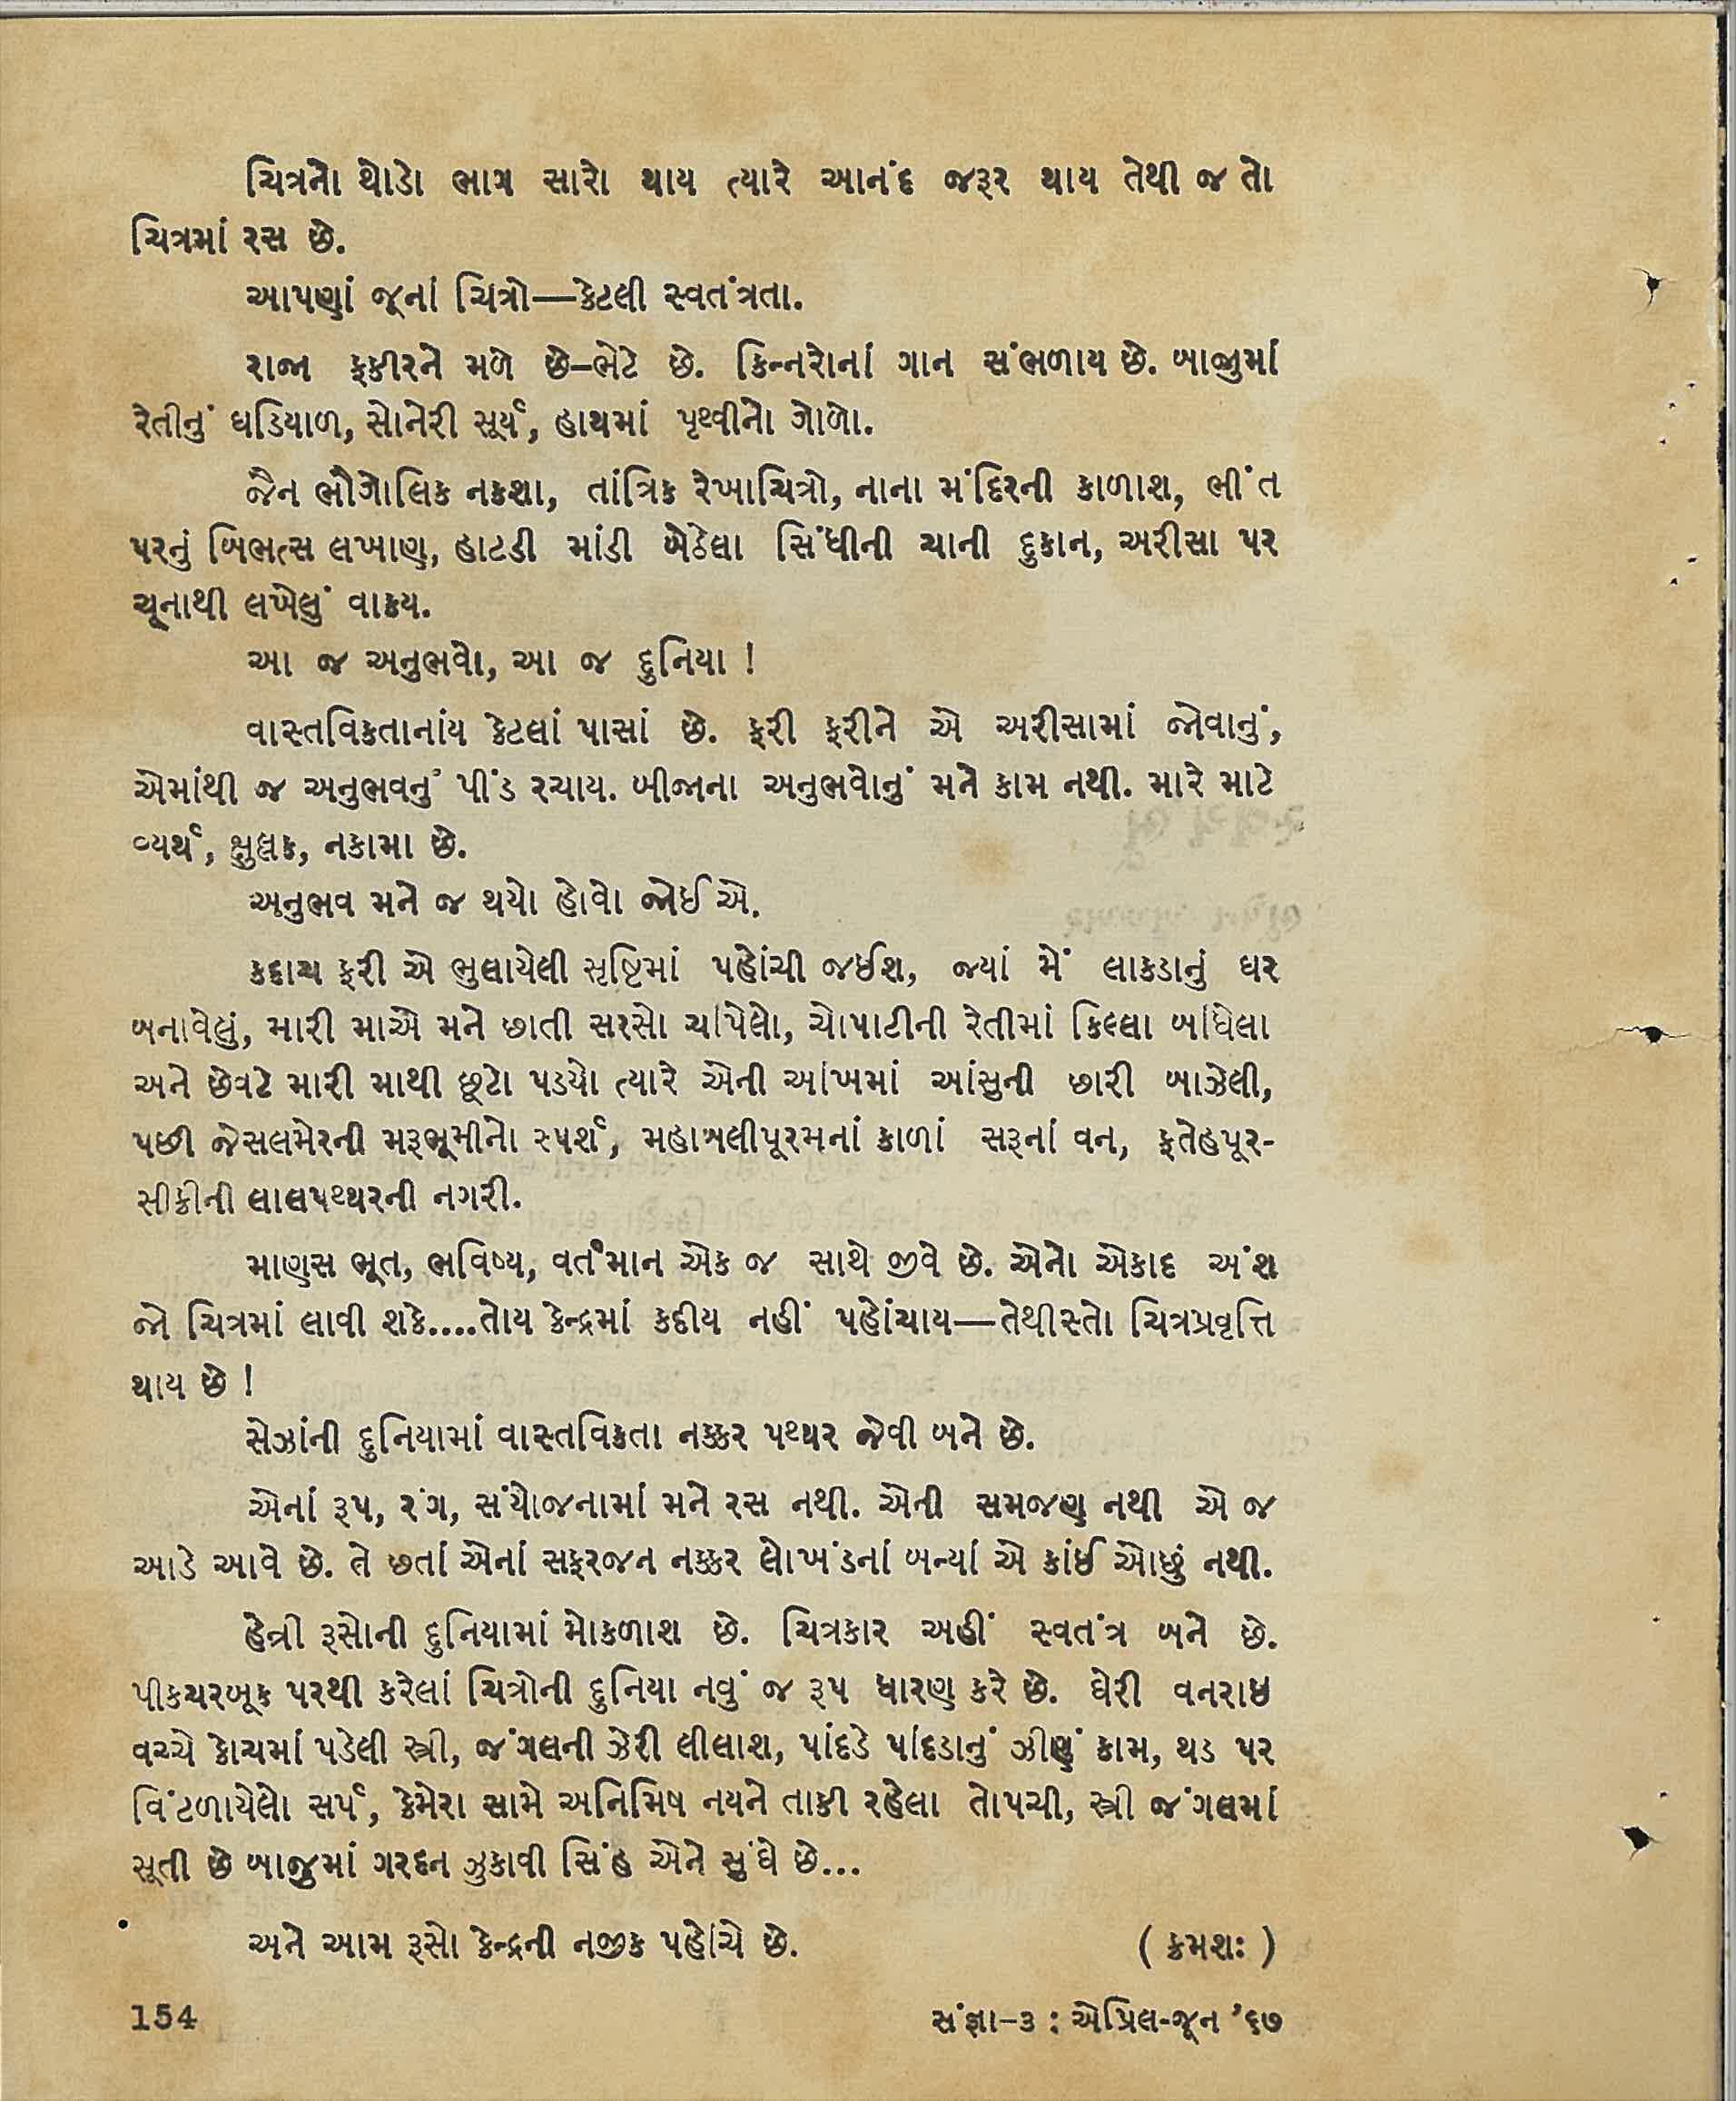 ચિત્રનો થોડો ભાગ સારો થાય ત્યારે આનંદ જરૂર થાય તેથી જ તો
ચિત્રમાં રસ છે.
આપણાં જૂનાં ચિત્રો—કેટલી સ્વતંત્રતા.
રાજા ફકીરને મળે છે–ભેટે છે. કિન્નરોનાં ગાન સંભળાય છે. બાજુમાં
રેતીનું ઘડિયાળ, સોનેરી સૂર્ય, હાથમાં પૃથ્વીનો ગોળો.
જૈન ભૌગોલિક નકશા, તાંત્રિક રેખાચિત્રો, નાના મંદિરની કાળાશ, ભીંત
પરનું બિભત્સ લખાણ, હાટડી માંડી બેઠેલા સિંધીની ચાની દુકાન, અરીસા પર
ચૂનાથી લખેલું વાક્ય.
આ જ અનુભવો, આ જ દુનિયા !
વાસ્તવિકતાનાંય કેટલાં પાસાં છે. ફરી ફરીને એ અરીસામાં જોવાનું,
એમાંથી જ અનુભવનું પીંડ રચાય. બીજાના અનુભવોનું મને કામ નથી. મારે માટે
વ્યર્થ, ક્ષુલ્લક, નકામા છે.
અનુભવ મને જ થયો હોવો જોઈએ.
કદાચ ફરી એ ભુલાયેલી સૃષ્ટિમાં પહોંચી જઈશ, જ્યાં મેં લાકડાનું ઘર
બનાવેલું, મારી માએ મને છાતી સરસો ચાંપેલો, ચોપાટીની રેતીમાં કિલ્લા બાંધેલા
અને છેવટે મારી માથી છૂટો પડયો ત્યારે એની આંખમાં આંસુની છારી બાઝેલી,
પછી જેસલમેરની મરૂભૂમીનો સ્પર્શ, મહાબલીપૂરમનાં કાળાં સરૂનાં વન, ફતેહપૂર-
સીક્રીની લાલપથ્થરની નગરી.
માણસ ભૂત, ભવિષ્ય, વર્તમાન એક જ સાથે જીવે છે. એનો એકાદ અંશ
જો ચિત્રમાં લાવી શકે....તોય કેન્દ્રમાં કદીય નહીં પહોંચાય—તેથીસ્તો ચિત્રપ્રવૃત્તિ
થાય છે !
સેઝાંની દુનિયામાં વાસ્તવિકતા નક્કર પથ્થર જેવી બને છે.
એનાં રૂપ, રંગ, સંયોજનામાં મને રસ નથી. એની સમજણ નથી એ જ
આડે આવે છે. તે છતાં એનાં સફરજન નક્કર લોખંડનાં બન્યાં એ કાંઈ ઓછું નથી.
હેન્રી રૂસોની દુનિયામાં મોકળાશ છે. ચિત્રકાર અહીં સ્વતંત્ર બને છે.
પીકચરબૂક પરથી કરેલાં ચિત્રોની દુનિયા નવું જ રૂપ ધારણ કરે છે. ઘેરી વનરાઇ
વચ્ચે કોચમાં પડેલી સ્ત્રી, જંગલની ઝેરી લીલાશ, પાંદડે પાંદડાનું ઝીણું કામ, થડ પર
વિંટળાયેલો સર્પ, કેમેરા સામે અનિમિષ નયને તાકી રહેલા તોપચી, સ્ત્રી જંગલમાં
સૂતી છે બાજુમાં ગરદન ઝુકાવી સિંહ એને સુંઘે છે...
અને આમ રૂસો કેન્દ્રની નજીક પહોંચે છે. ( ક્રમશઃ )
154 સંજ્ઞા-૩ : એપ્રિલ-જૂન '૬૭